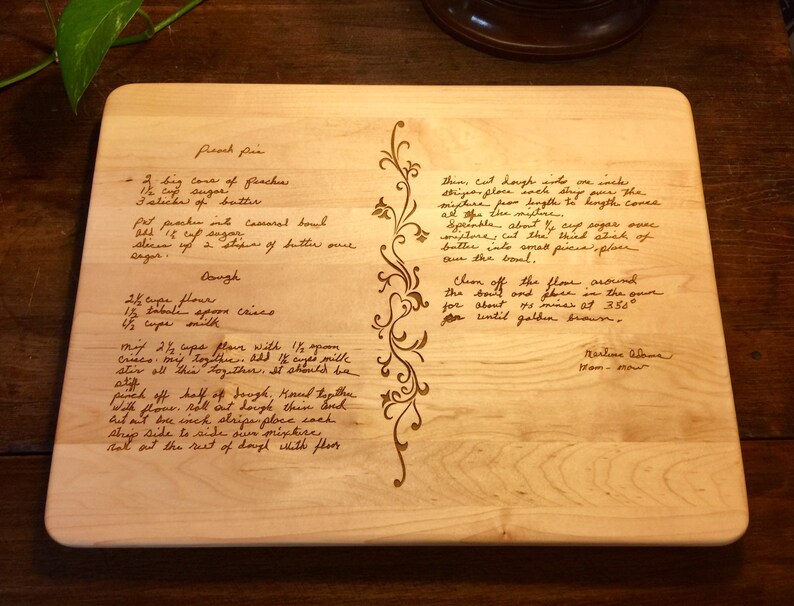 Peach Pie
2 big cans of Peaches
1½ cup sugar
3 sticks of butter
Put peaches into casserol bowl
add 1½ cup sugar
slices up 2 stixs of butter over
sugar.
Dough
2½ cups flour
1½ table spoon crisco
1½ cups milk
mix 2½ cups flour with 1½ spoon
crisco. mix together. add 1½ cups milk
stir all this together. It should be
stiff
pinch off half of dough. Kneed together
with flour. roll out dough thin and
cut out one inch strips. place each
strip side to side over mixture
roll out the rest of dough with flour
thin, cut dough into one inch
strips. place each strip over the
mixture from length to length cones
all the mixture.
Sprinkle about ¼ cup sugar over
mixture. cut the third stick of
butter into small pieces. place
over the bowl.
Clean off the flour around
the bowl and place in the oven
for about 45 mins at 350°
until golden brown.
Merlene Adams
Mam-maw